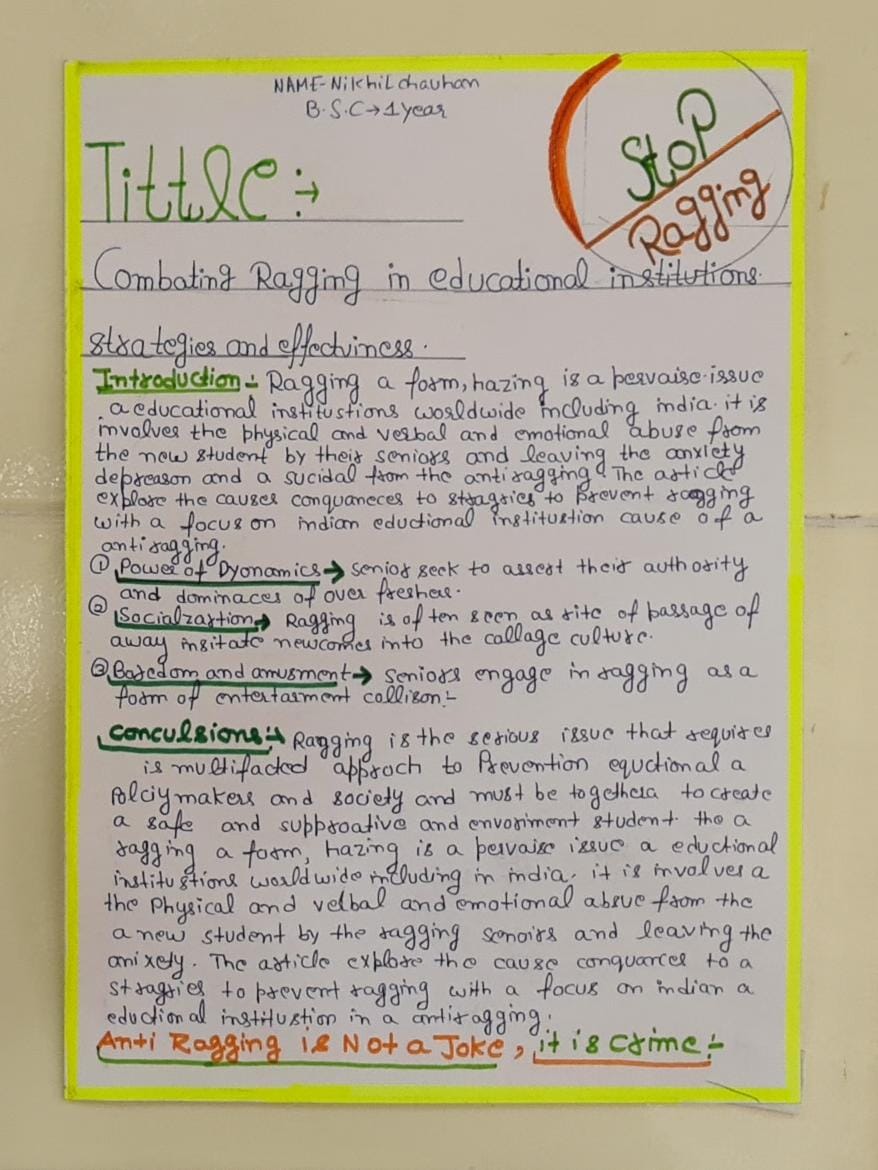 NAME-Nikhil chauhan
B.S.C→1year
Stop
Ragging
Tittle:→
Combating Ragging in educational institutions.
strategies and effectviness.
Introduction:- Ragging a form, hazing is a pervaise issue
a educational institustions worldwide including india. it is
involves the physical and verbal and emotional abuse from
the new student by their seniors and leaving the anxiety
depreason and a sucidal from the antiragging. The article
explore the causes conquaneces to stragries to prevent ragging
with a focus on indian eductional institustion cause of a
antiragging.
① Power of Dyonamics→ senior seek to assert their authority
and dominaces of over freshers.
② Socialzartion→ Ragging is often seen as rite of passage of
away insitate newcomes into the callage culture.
③ Baredom and amusment→ seniors engage in ragging as a
form of entertasment collison:-
Conculsions:→ Ragging is the serious issue that requires
is multifacted approch to Prevention equctional a
Polciymakers and society and must be togethera to create
a safe and supproative and envoriment student the a
ragging a form, hazing is a pervaise issue a eductional
institustions worldwide including in india. it is involves a
the Physical and velbal and emotional absue from the
a new student by the ragging senoirs and leaving the
anixety. The article explore the cause conquarces to a
stragries to prevent ragging with a focus on indian a
eductional institustion in a antiragging.
Anti Ragging is Not a Joke, it is crime:-